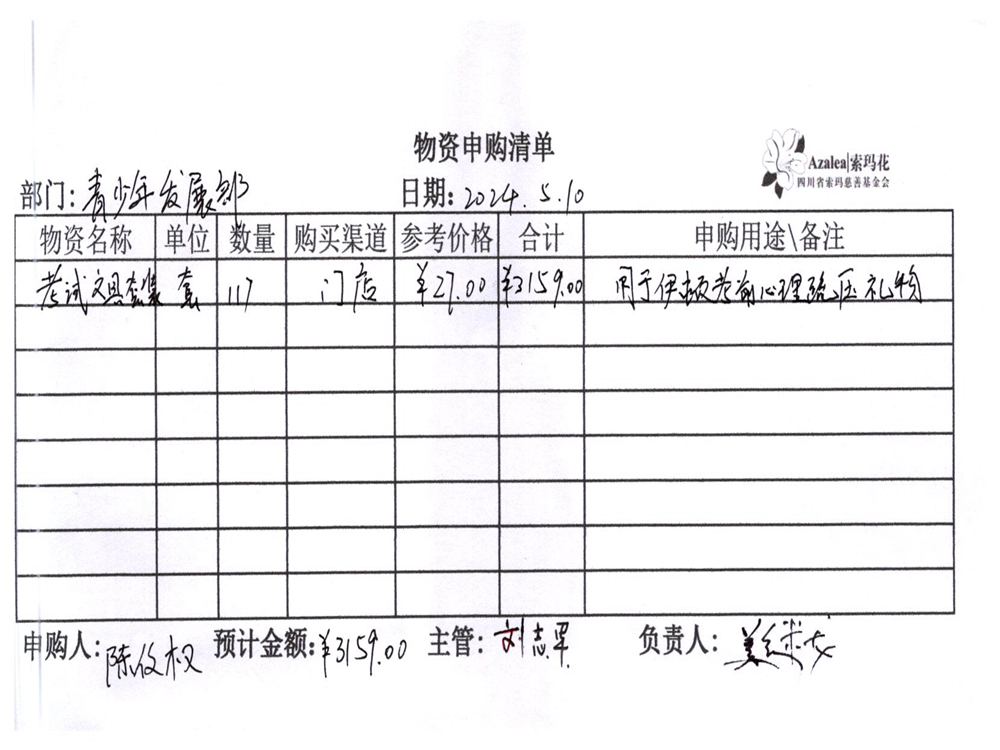 物资申购清单
Azalea|索玛花
四川省索玛慈善基金会
部门：青少年发展部 日期：2024.5.10
物资名称 单位 数量 购买渠道 参考价格 合计 申购用途\备注
考试文具套装 套 117 门店 ¥27.00 ¥3159.00 用于伊顿考前心理疏压礼物
申购人： 预计金额：¥3159.00 主管：刘志军 负责人：